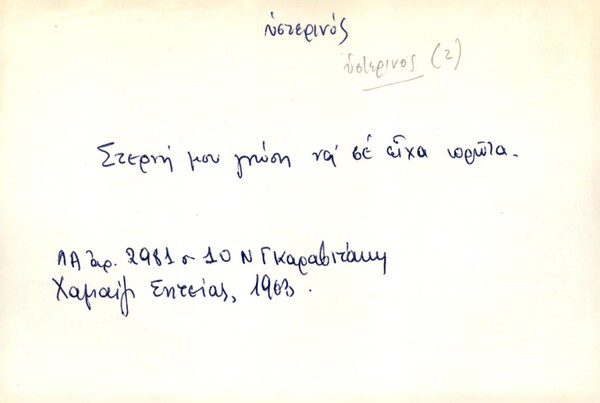 ὑστερινός
ὑστερινος (2)
Στερνή μου γνώση νά σέ εἶχα πρῶτα.
ΛΑ ἀρ. 2981 σ 10 Ν Γκαραβιτάκη
Σητείας, 1963.